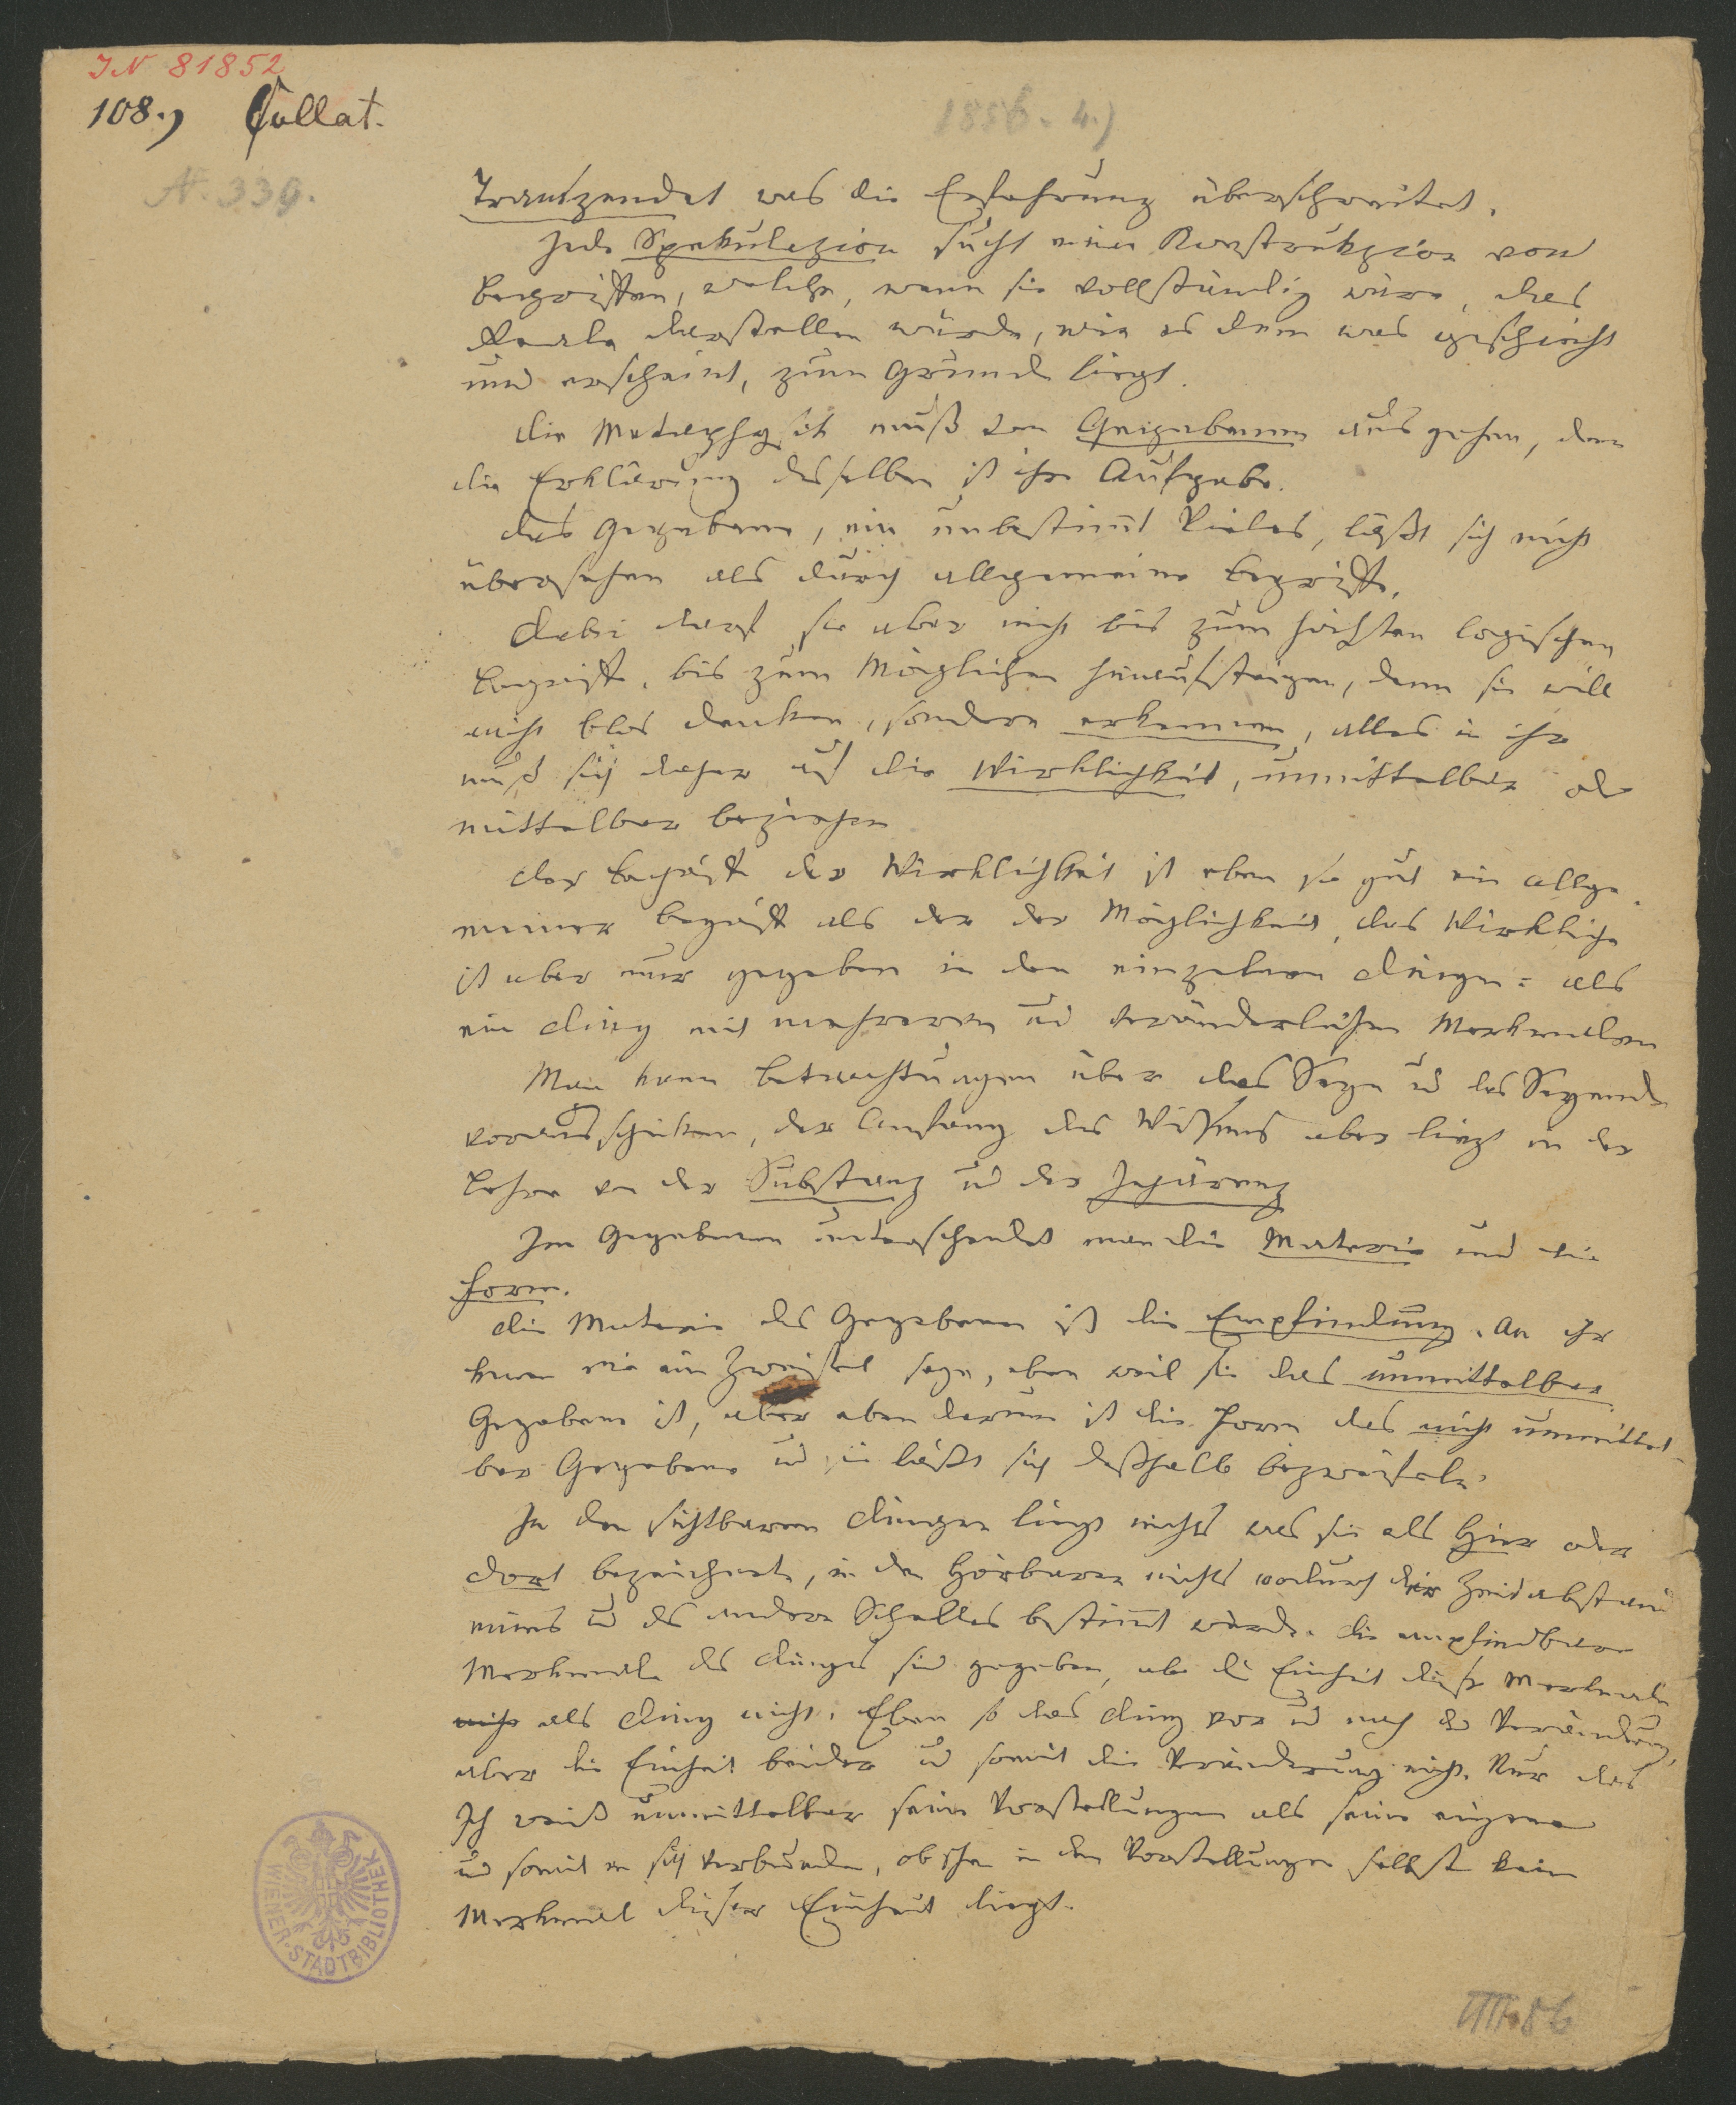 IN 81852
108.) Collat.
1856. 4.)
N. 339.
Transzendet was die Erfahrung überschreitet.
Jede Spekulazion sucht eine Konstrukzion von
Begriffen, welche, wenn sie vollständig wäre, das
Reale darstellen würde, wie es dem was geschieht
und erscheint, zum Grunde liegt.
Die Metaphysik muß vom Gegebenen ausgehen, denn
die Erklärung desselben ist ihre Aufgabe.
Das Gegebene, ein unbestimt Vieles, läßt sich nicht
übersehen als durch allgemeine Begriffe.
Dabei darf sie aber nicht bis zum höchsten logischen
Begriffe, bis zum Möglichen hinaufsteigen, denn sie will
nicht blos denken, sondern erkennen, alles in ihr
muß sich daher auf die Wirklichkeit, unmittelbar oder
mittelbar beziehen
Der Begriff der Wirklichkeit ist eben so gut ein allge
meiner Begriff als der der Möglichkeit, das Wirkliche
ist aber nur gegeben in den einzelnen Dingen: als
ein Ding mit mehreren und veränderlichen Merkmalen
Man kann Betrachtungen über das Seyn und das Seyende
vorausschicken, der Anfang des Wißens aber liegt in der
Lehre von der Substanz und der Inhärenz
Im Gegebenen unterscheidet man die Materie und die
Form.
Die Materie des Gegebenen ist die Empfindung. An ihr
kann nie ein Zweifel seyn, eben weil sie das unmittelbar
Gegebene ist, aber eben darum ist die Form das nicht unmittel
bar Gegebene und sie läßt sich deßhalb bezweifeln.
In den sichtbaren Dingen liegt nichts was sie als Hier oder
Dort bezeichnete, in den Hörbaren nichts wodurch der Zeitabstand
eines und des andern Schalles bestimt würde. Die empfindbaren
Merkmale des Dinges sind gegeben, aber die Einheit dieser Merkmale
nicht als Ding nicht. Eben so das Ding vor und nach der Veränderung,
aber die Einheit beider und somit die Veränderung nicht. Nur das
Ich weiß unmittelbar seine Vorstellungen als seine eigenen
und somit in sich verbunden, obschon in den Vorstellungen selbst kein
Merkmal dieser Einheit liegt.
WIENER STADTBIBLIOTHEK